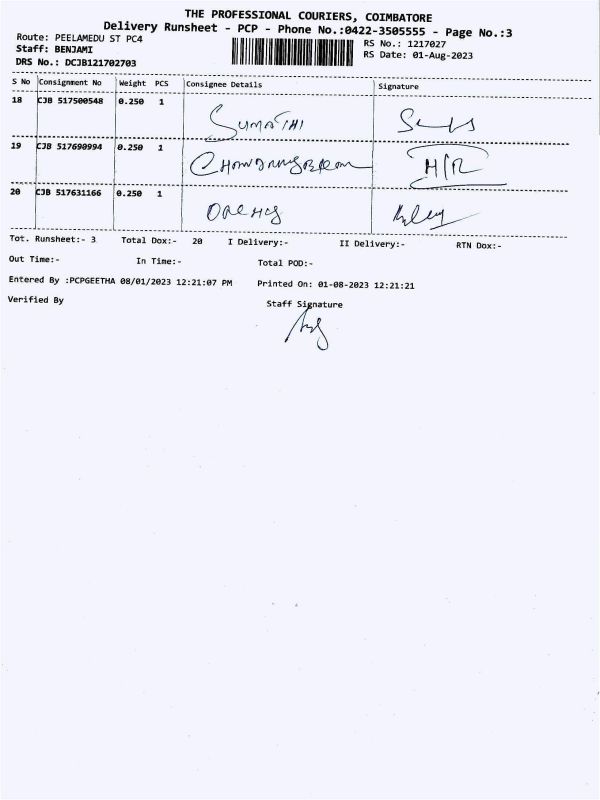 THE PROFESSIONAL COURIERS, COIMBATORE
Delivery Runsheet - PCP - Phone No.:0422-3505555 - Page No.:3
Route: PEELAMEDU ST PC4
RS No.: 1217027
Staff: BENJAMI
RS Date: 01-Aug-2023
DRS No.: DCJB121702703
S No Consignment No Weight PCS Consignee Details Signature
18 CJB 517500548 0.250 1 SUMATHI
19 CJB 517690994 0.250 1
20 CJB 517631166 0.250 1
Tot. Runsheet:- 3 Total Dox:- 20 I Delivery:- II Delivery:- RTN Dox:-
Out Time:- In Time:- Total POD:-
Entered By :PCPGEETHA 08/01/2023 12:21:07 PM Printed On: 01-08-2023 12:21:21
Verified By Staff Signature